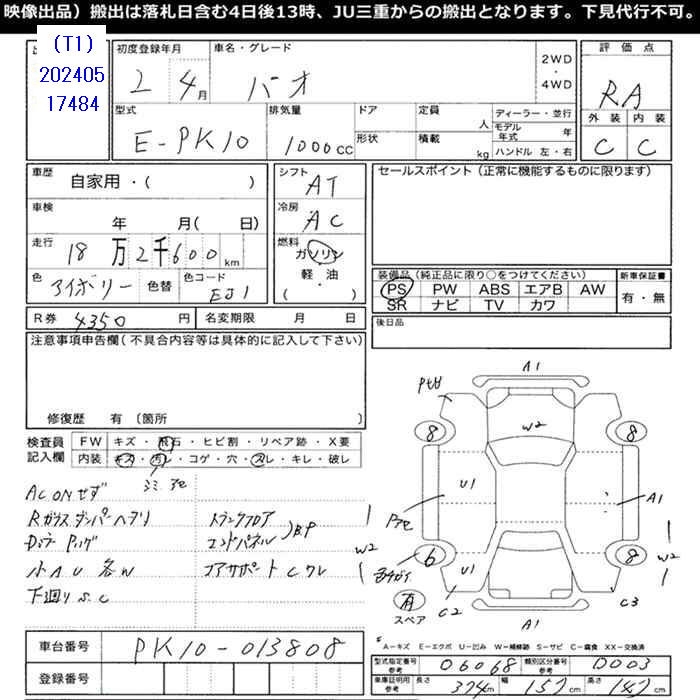 映像出品）搬出は落札日含む4日後13時、JU三重からの搬出となります。下見代行不可。
(T1)
202405
17484
初度登録年月
2 4月
車名・グレード
パオ
2WD
・
4WD
評価点
RA
型式
E-PK10
排気量
1000cc
ドア
形状
定員 人
積載 kg
ディーラー・並行
モデル年式 年
ハンドル 左・右
外装 内装
C C
車歴
自家用・( )
シフト
AT
セールスポイント（正常に機能するものに限ります）
車検
年 月( 日)
冷房
AC
走行
18万2千600km
燃料
ガソリン
軽・油
( )
色
アイボリー
色替
色コード
EJ1
装備品（純正品に限り○をつけてください）
新車保証書
PS PW ABS エアB AW
有・無
SR ナビ TV カワ
R券 4350円
名変期限 月 日
後日品
注意事項申告欄（不具合内容等は具体的に記入して下さい）
修復歴 有 〔箇所 〕
検査員
記入欄
FW キズ・飛石・ヒビ割・リペア跡・X要
内装 キズ・汚レ・コゲ・穴・スレ・キレ・破レ
AC ONせず
Rガラスダンパーヘタリ
小AU各W
下廻りS.C
トランクフロア
エンドパネル
BP
コアサポートCワレ
W2
A1
8 8
W2
U1 U1
A1
6 8
W2
U1
C2 C3
有
スペア
A1
A－キズ E－エクボ U－凹み W－補修跡 S－サビ C－腐食 XX－交換済
車台番号
PK10-013808
登録番号
型式指定番号
参考
06068
類別区分番号
参考
D003
車庫証明用
参考
長さ 374cm
幅 157cm
高さ 147cm